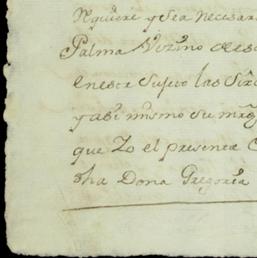 Requiere y sea necesar
Palma Vezino de es
en este sujeto las sir
y asi mismo su mrg
que Yo el presente
dha Dona Gregoria